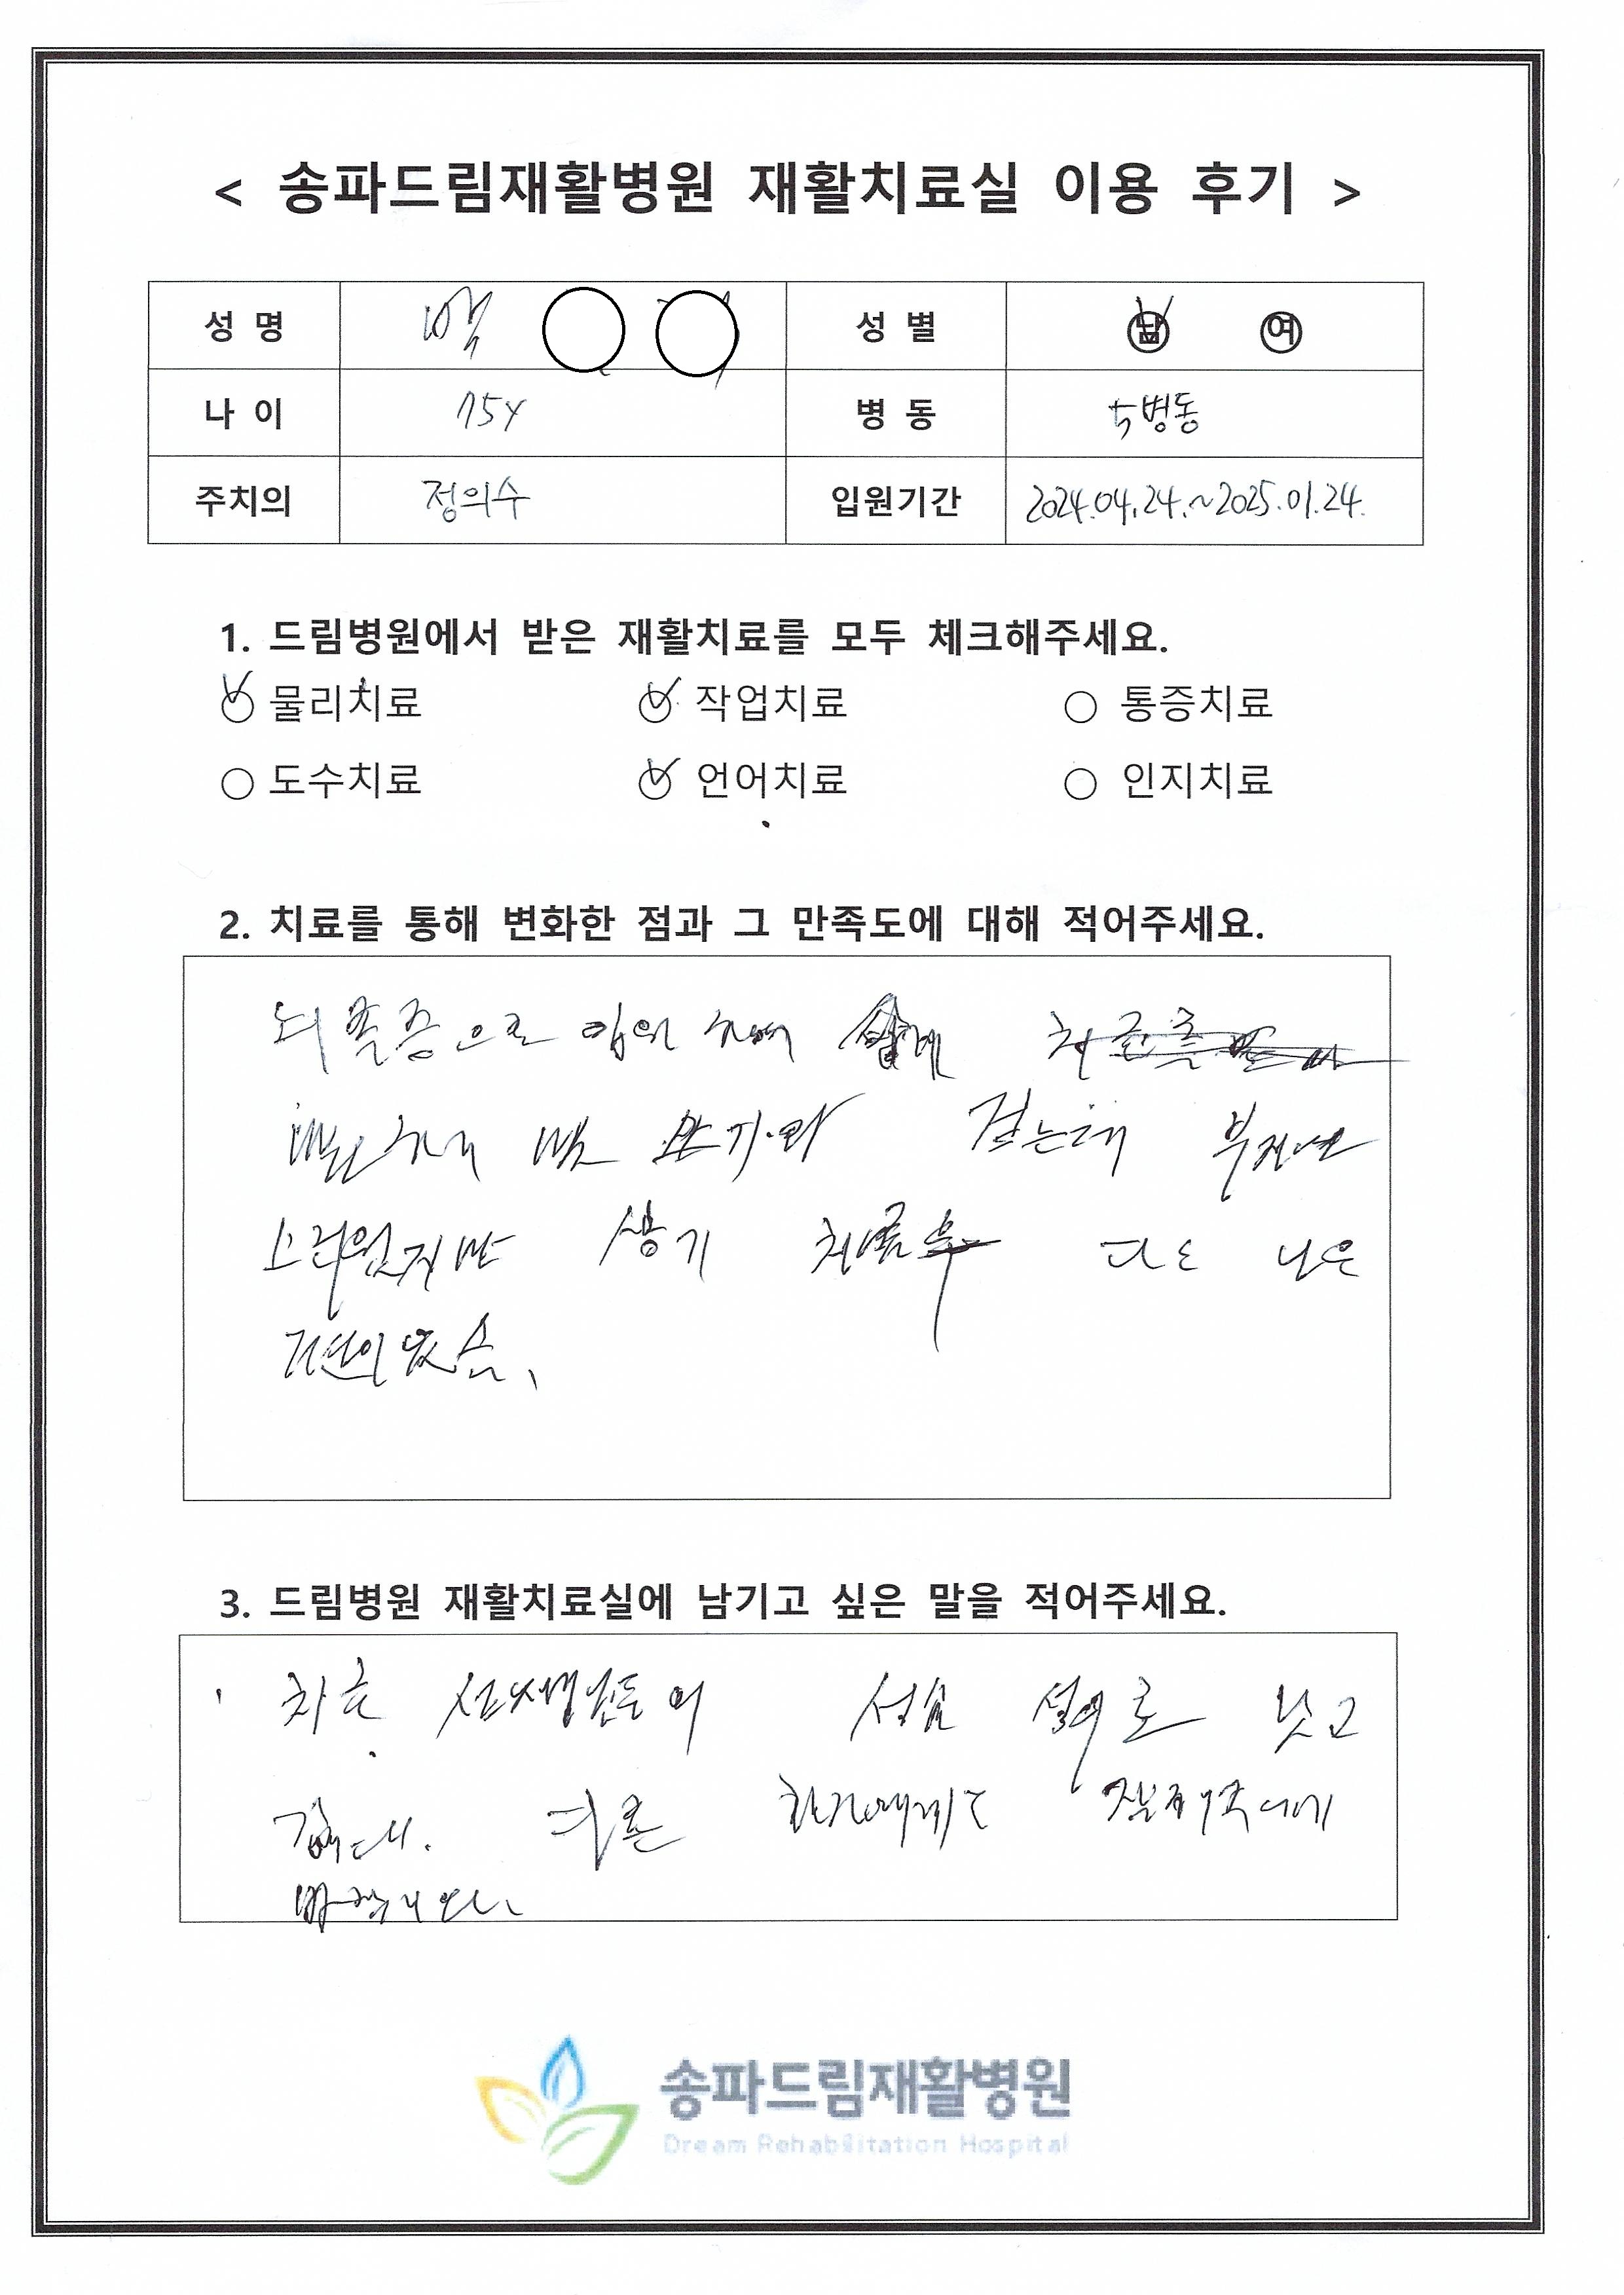 < 송파드림재활병원 재활치료실 이용 후기 >
성 명 성 별 남 여
나 이 75Y 병 동 5병동
주치의 정의수 입원기간 2024.04.24.~2025.01.24.
1. 드림병원에서 받은 재활치료를 모두 체크해주세요.
물리치료 작업치료 통증치료
도수치료 언어치료 인지치료
2. 치료를 통해 변화한 점과 그 만족도에 대해 적어주세요.
뇌졸증으로 입원하여
걷는데 부자연
스러웠지만 상기 치료후 다소 나은
3. 드림병원 재활치료실에 남기고 싶은 말을 적어주세요.
치료 선생님들의 성심 성의로 낫고
다른
송파드림재활병원
Dream Rehabilitation Hospital